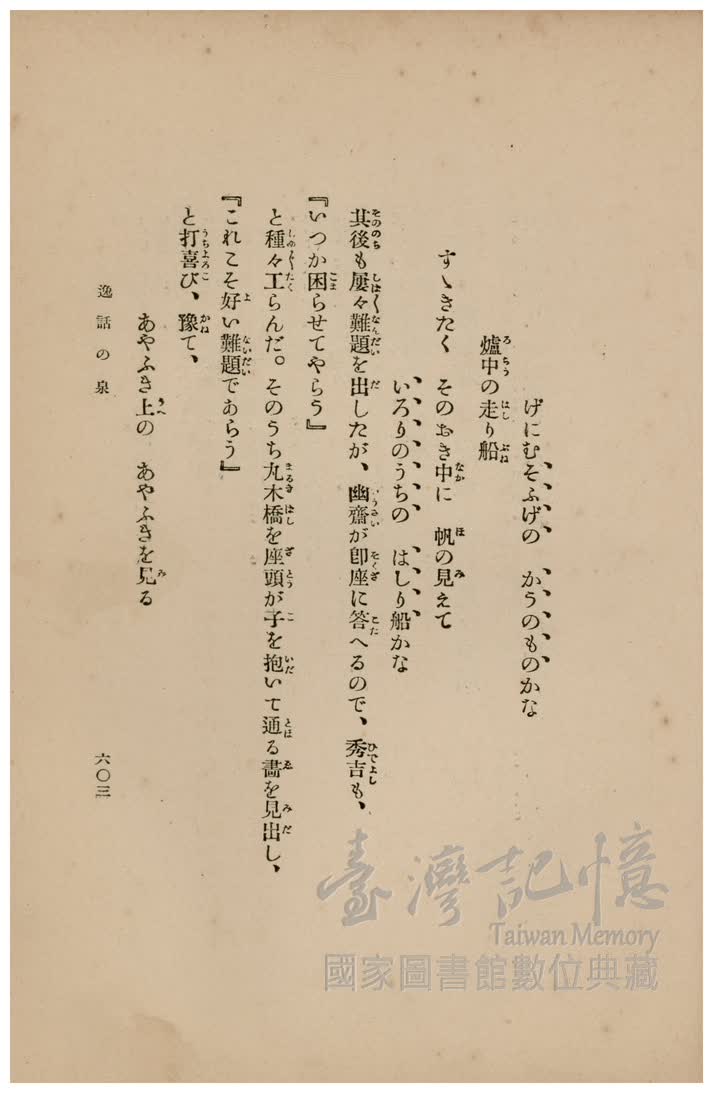 げにむそふげの　かうのものかな
爐中の走り船
すゝきたく　そのおき中に　帆の見えて
いろりのうちの　はしり船かな
其後も屢々難題を出したが、幽齋が卽座に答へるので、秀吉も、
『いつか困らせてやらう』
と種々工らんだ。そのうち丸木橋を座頭が子を抱いて通る畵を見出し、
『これこそ好い難題であらう』
と打喜び、豫て、
あやふき上の　あやふきを見る
逸話の泉
六〇三
臺灣記憶
Taiwan Memory
國家圖書館數位典藏